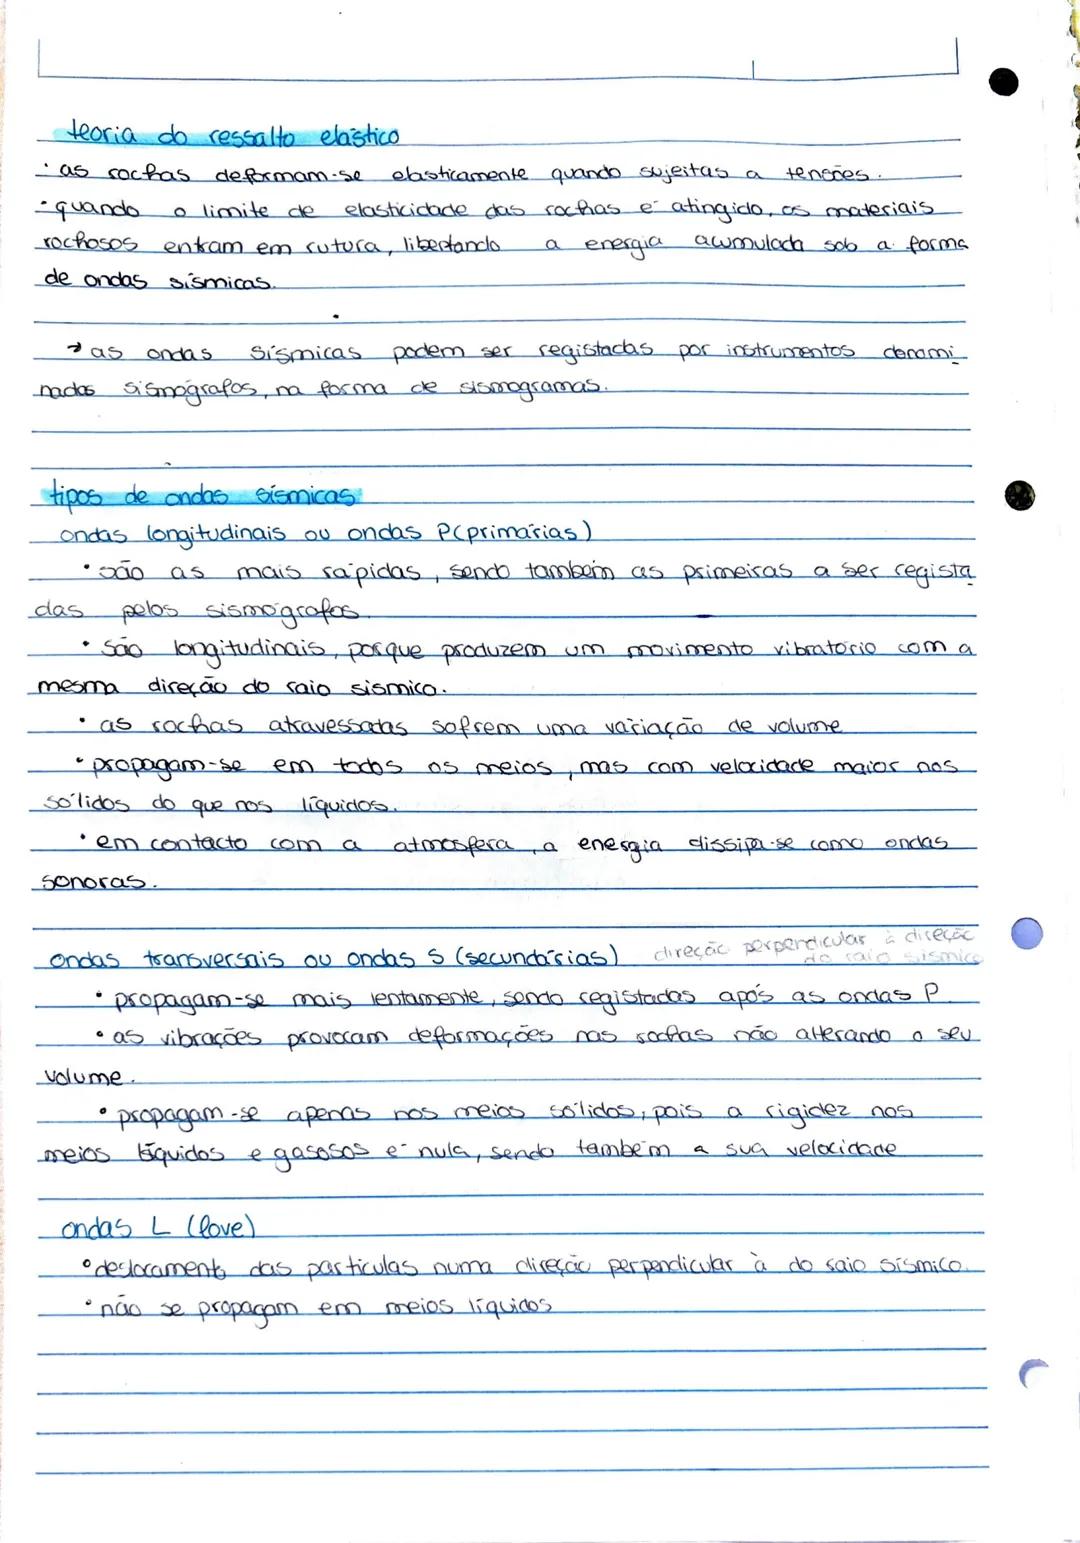 teoria do ressalto elástico
· as rochas deformam-se elasticamente quando sujeitas a tensões.
· quando o limite de elasticidade das rochas é atingido, os materiais
rochosos entram em rutura, libertando a energia acumulada sob a forma
de ondas sísmicas.
→ as ondas sísmicas podem ser registadas por instrumentos denomi
nados sismógrafos, na forma de sismogramas.
tipos de ondas sísmicas
ondas longitudinais ou ondas P (primárias)
· são as mais rápidas, sendo também as primeiras a ser regista
das pelos sismógrafos.
· são longitudinais, porque produzem um movimento vibratório com a
mesma direção do raio sismico.
· as rochas atravessadas sofrem uma variação de volume
· propagam-se em todos os meios, mas com velocidade maior nos
sólidos do que nos líquidos.
· em contacto com a atmosfera, a energia dissipa-se como ondas
sonoras.
ondas transversais ou ondas S (secundárias) direção perpendicular à direção
do raio sísmico
· propagam-se mais lentamente, sendo registadas após as ondas P.
· as vibrações provocam deformações nas rochas não alterando o seu
volume.
· propagam-se apenas nos meios sólidos, pois a rigidez nos
meios líquidos e gasosos é nula, sendo também a sua velocidade
ondas L (love)
· deslocamento das partículas numa direção perpendicular à do raio sísmico.
· não se propagam em meios líquidos